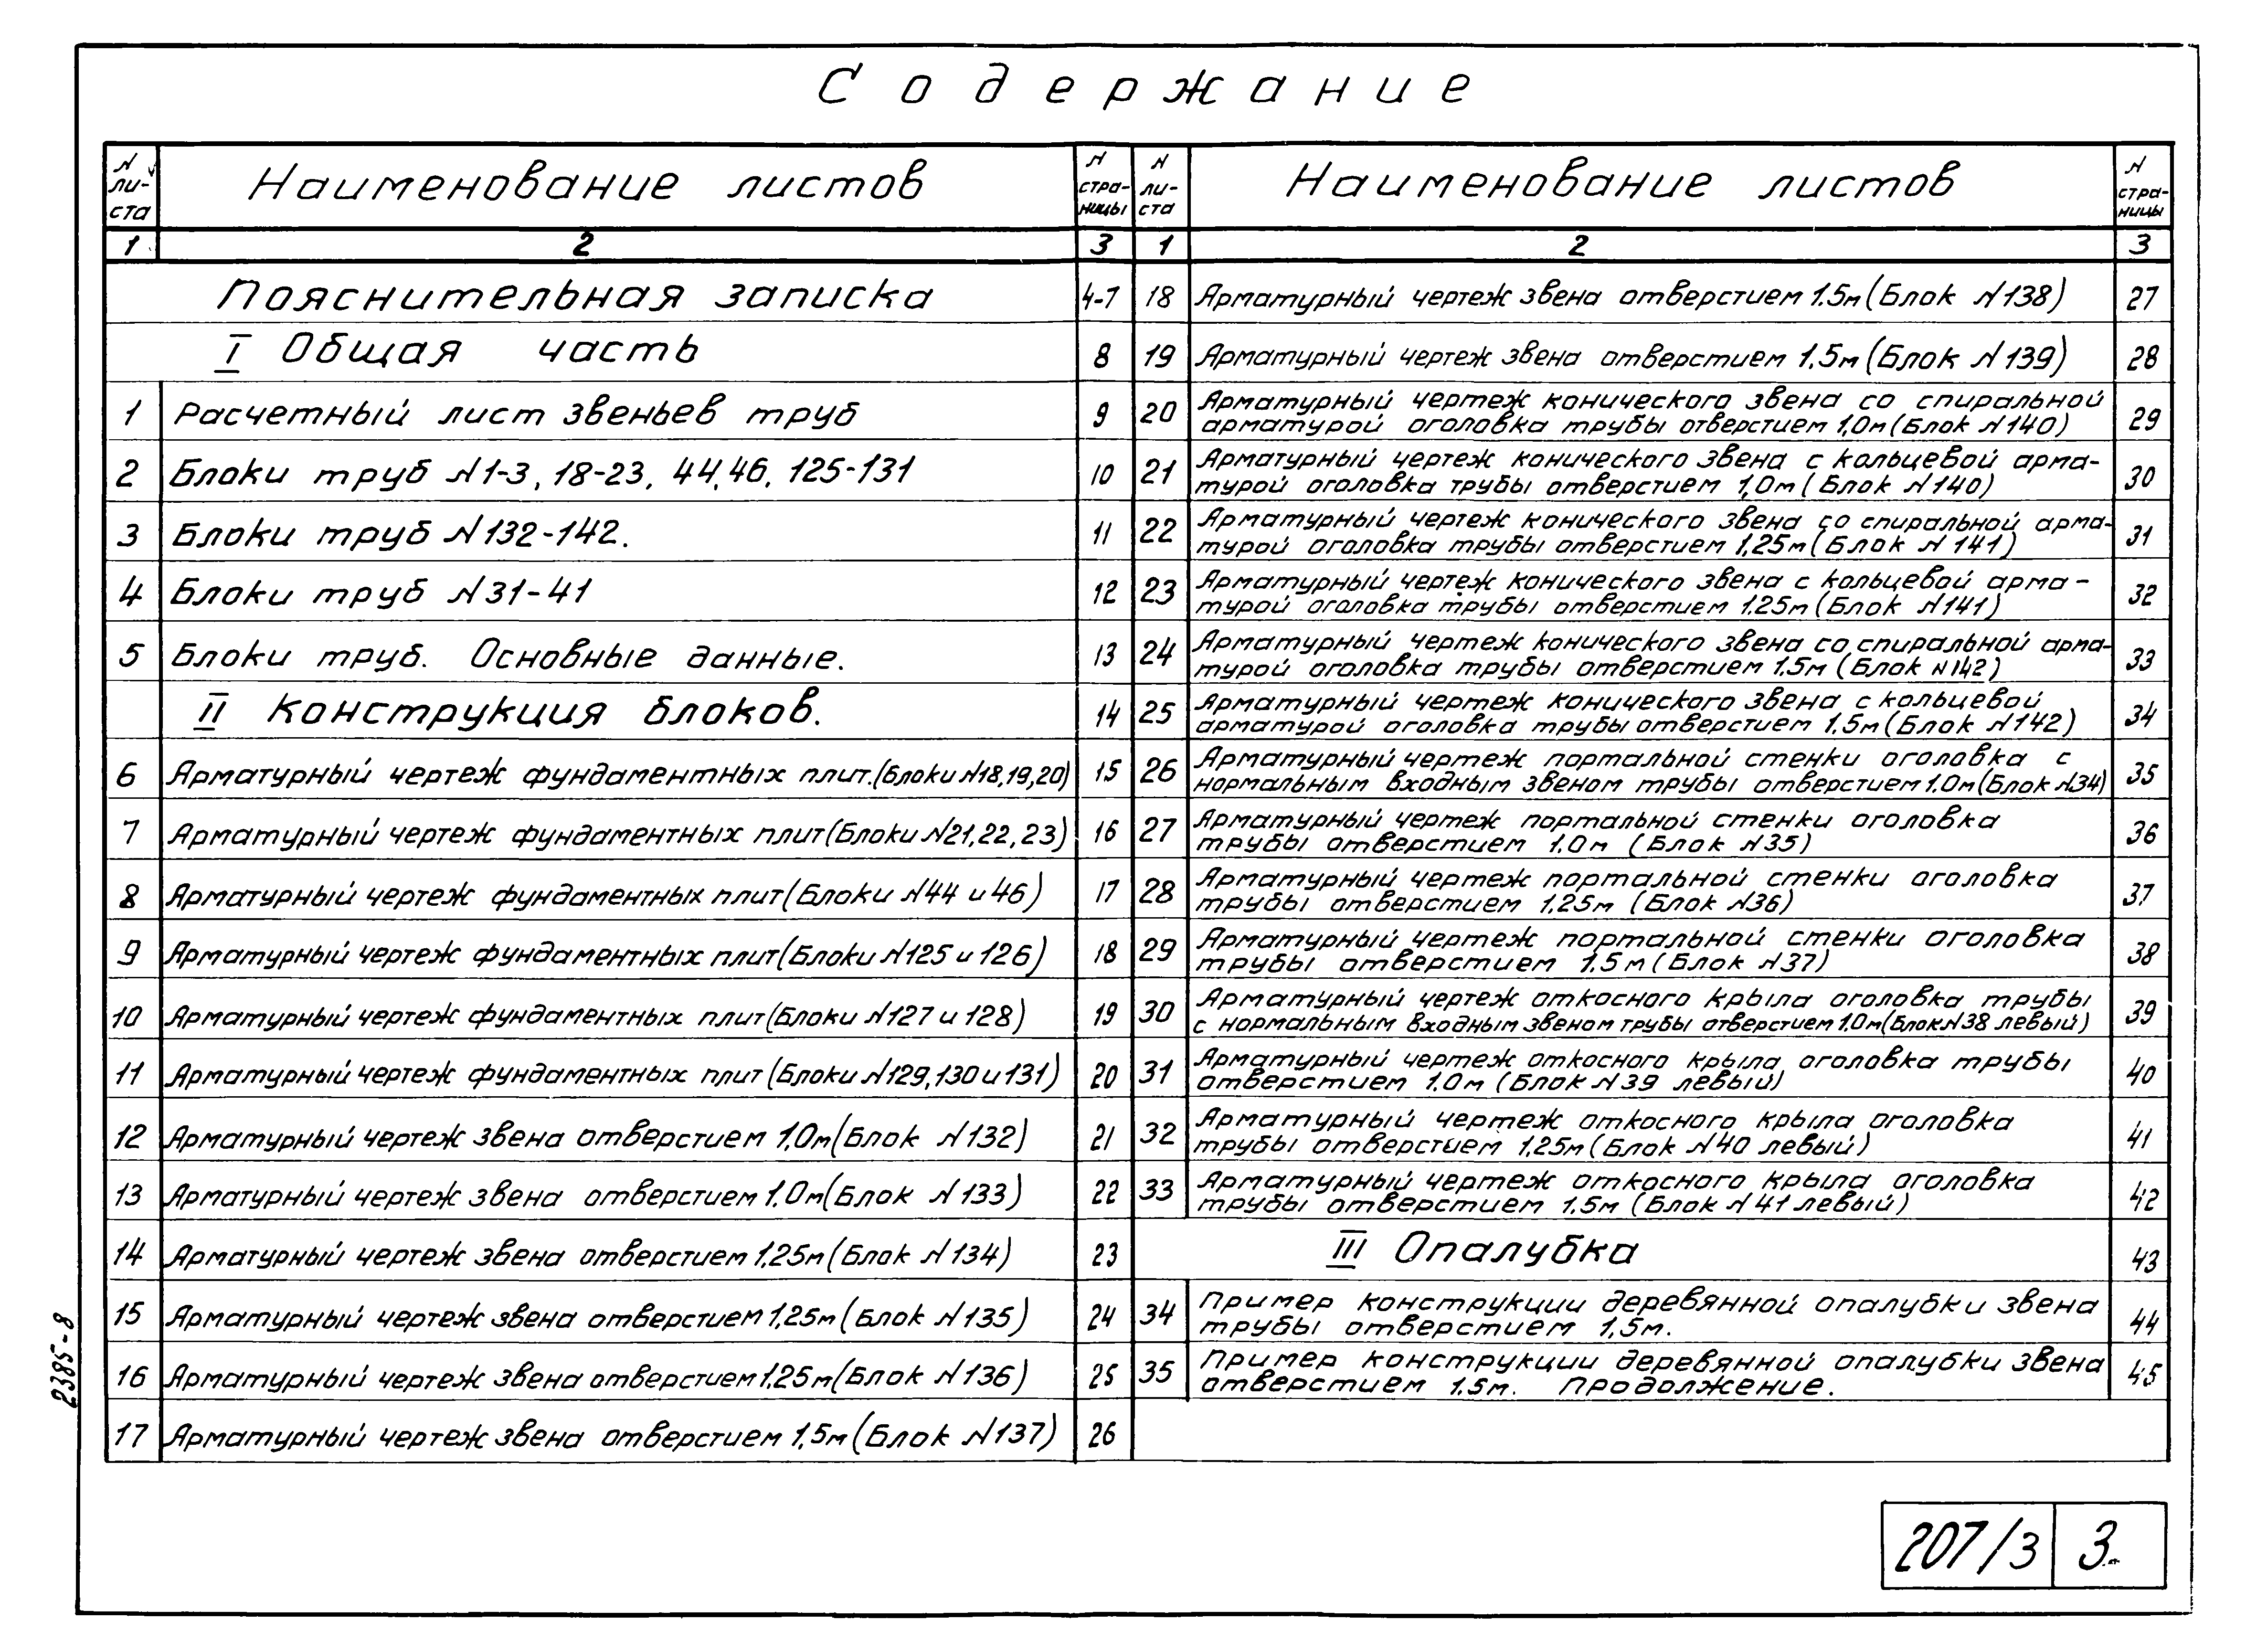 Содержание
N ли-ста Наименование листов N стра-ницы
1 2 3
Пояснительная записка 4-7
I Общая часть 8
1 Расчетный лист звеньев труб 9
2 Блоки труб N1-3, 18-23, 44,46, 125-131 10
3 Блоки труб N132-142. 11
4 Блоки труб N31-41 12
5 Блоки труб. Основные данные. 13
II Конструкция блоков. 14
6 Арматурный чертеж фундаментных плит.(Блоки N18,19,20) 15
7 Арматурный чертеж фундаментных плит(Блоки N21,22,23) 16
8 Арматурный чертеж фундаментных плит(Блоки N44 и 46) 17
9 Арматурный чертеж фундаментных плит(Блоки N125 и 126) 18
10 Арматурный чертеж фундаментных плит(Блоки N127 и 128) 19
11 Арматурный чертеж фундаментных плит(Блоки N129,130 и 131) 20
12 Арматурный чертеж звена отверстием 1,0м(Блок N132) 21
13 Арматурный чертеж звена отверстием 1,0м(Блок N133) 22
14 Арматурный чертеж звена отверстием 1,25м(Блок N134) 23
15 Арматурный чертеж звена отверстием 1,25м(Блок N135) 24
16 Арматурный чертеж звена отверстием 1,25м(Блок N136) 25
17 Арматурный чертеж звена отверстием 1,5м(Блок N137) 26
N ли-ста Наименование листов N стра-ницы
1 2 3
18 Арматурный чертеж звена отверстием 1.5м(Блок N138) 27
19 Арматурный чертеж звена отверстием 1,5м(Блок N139) 28
20 Арматурный чертеж конического звена со спиральной
арматурой оголовка трубы отверстием 1,0м(Блок N140) 29
21 Арматурный чертеж конического звена с кольцевой арма-
турой оголовка трубы отверстием 1,0м(Блок N140) 30
22 Арматурный чертеж конического звена со спиральной арма-
турой оголовка трубы отверстием 1,25м(Блок N141) 31
23 Арматурный чертеж конического звена с кольцевой арма-
турой оголовка трубы отверстием 1.25м(Блок N141) 32
24 Арматурный чертеж конического звена со спиральной арма-
турой оголовка трубы отверстием 1,5м(Блок N142) 33
25 Арматурный чертеж конического звена с кольцевой
арматурой оголовка трубы отверстием 1,5м(Блок N142) 34
26 Арматурный чертеж портальной стенки оголовка с
нормальным входным звеном трубы отверстием 1.0м(Блок N34) 35
27 Арматурный чертеж портальной стенки оголовка
трубы отверстием 1.0м (Блок N35) 36
28 Арматурный чертеж портальной стенки оголовка
трубы отверстием 1,25м (Блок N36) 37
29 Арматурный чертеж портальной стенки оголовка
трубы отверстием 1,5м(Блок N37) 38
30 Арматурный чертеж откосного крыла оголовка трубы
с нормальным входным звеном трубы отверстием 1.0м(Блок N38 левый) 39
31 Арматурный чертеж откосного крыла оголовка трубы
отверстием 1.0м (Блок N39 левый) 40
32 Арматурный чертеж откосного крыла оголовка
трубы отверстием 1,25м(Блок N40 левый) 41
33 Арматурный чертеж откосного крыла оголовка
трубы отверстием 1,5м (Блок N41 левый) 42
III Опалубка 43
34 Пример конструкции деревянной опалубки звена
трубы отверстием 1,5м. 44
35 Пример конструкции деревянной опалубки звена
отверстием 1,5м. Продолжение. 45
2385-8
207/3 3